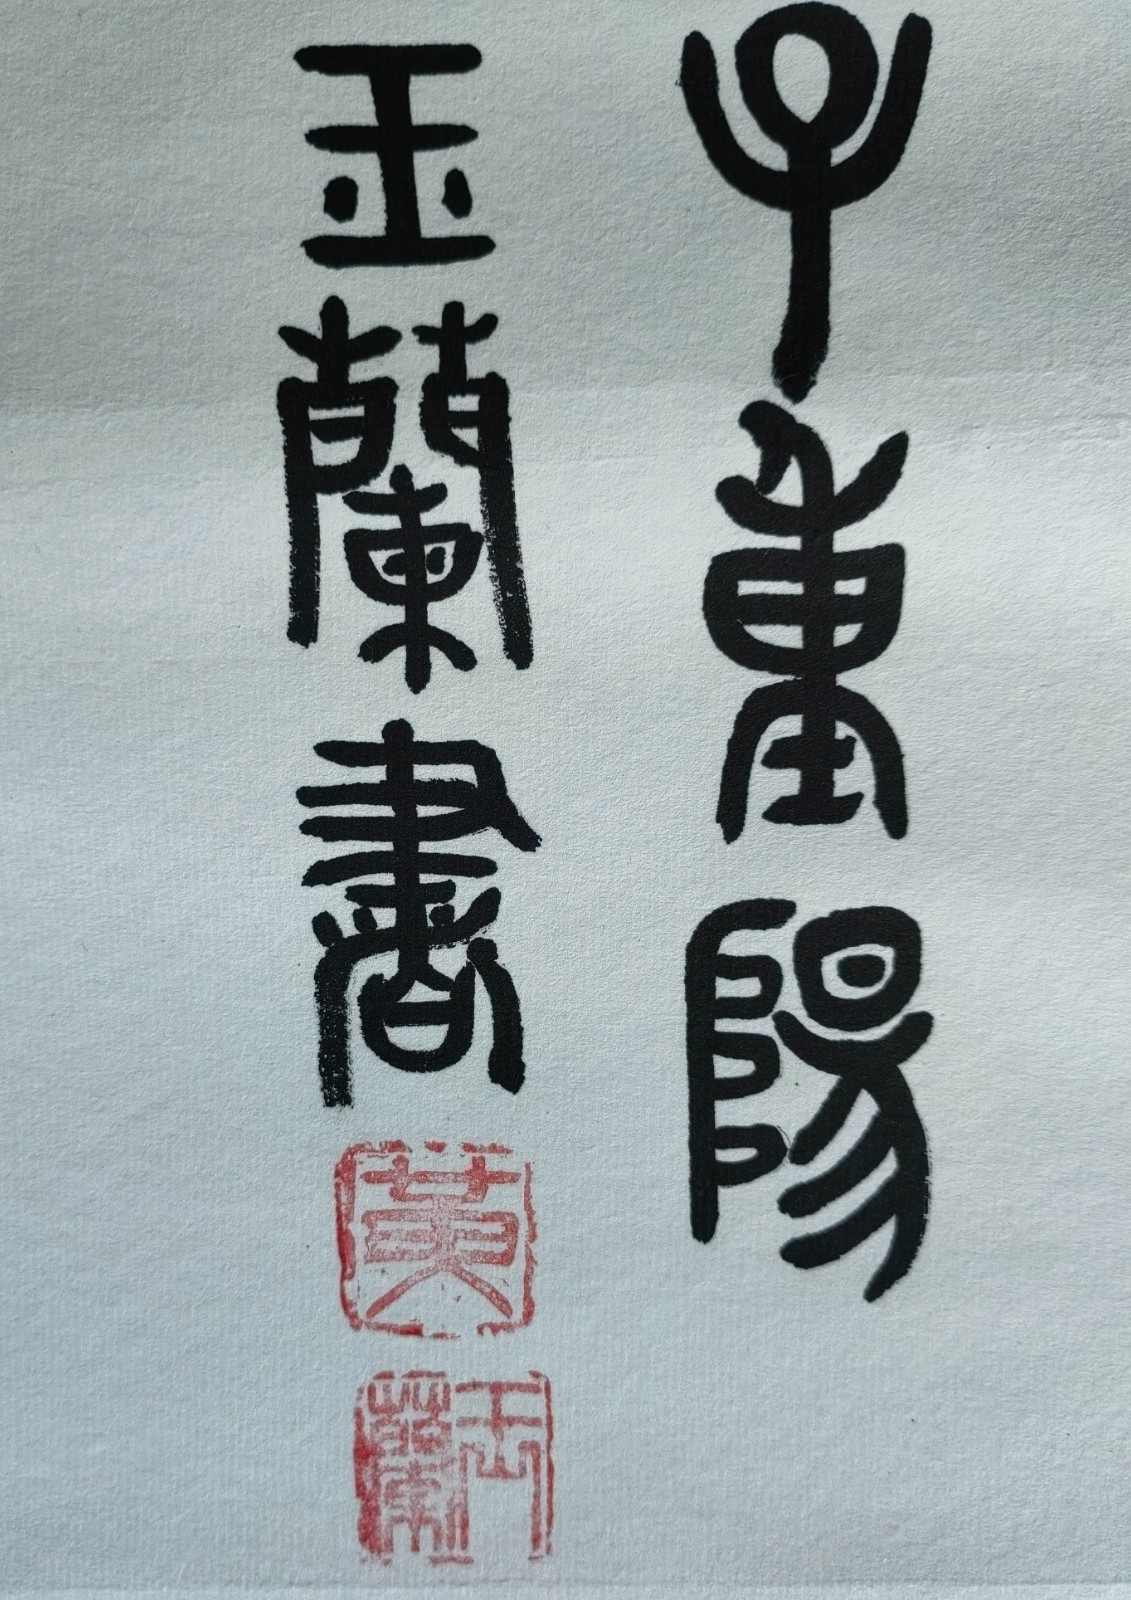 子重陽
玉蘭書
黃
玉蘭